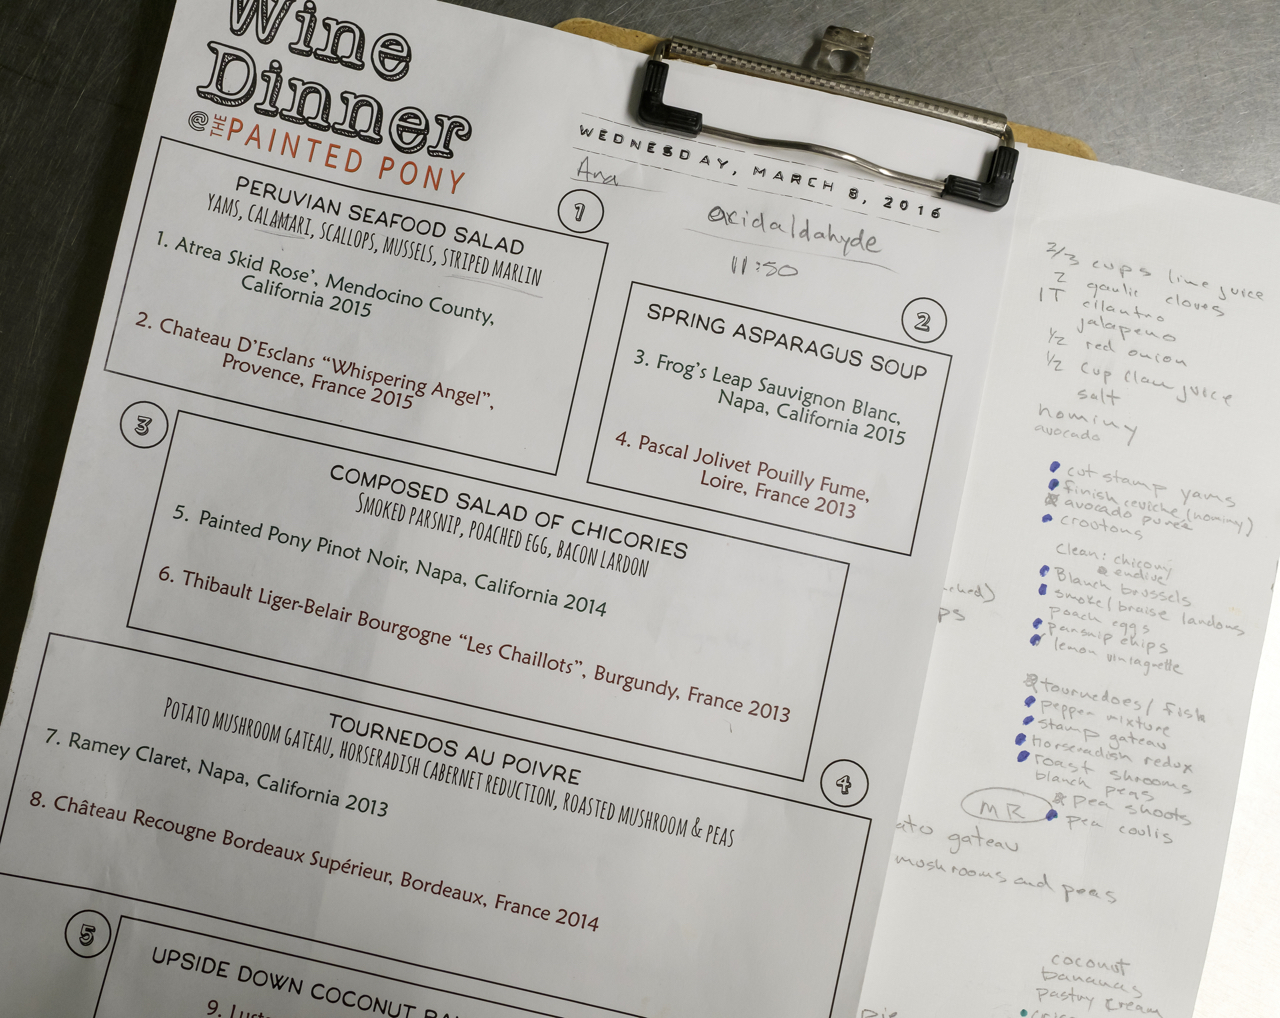 Wine
Dinner
@ THE PAINTED PONY
WEDNESDAY, MARCH 8, 2016
Ana
oxidaldahyde
11:50
1
PERUVIAN SEAFOOD SALAD
YAMS, CALAMARI, SCALLOPS, MUSSELS, STRIPED MARLIN
1. Atrea Skid Rose', Mendocino County,
California 2015
2. Chateau D'Esclans "Whispering Angel",
Provence, France 2015
2
SPRING ASPARAGUS SOUP
3. Frog's Leap Sauvignon Blanc,
Napa, California 2015
4. Pascal Jolivet Pouilly Fume,
Loire, France 2013
3
COMPOSED SALAD OF CHICORIES
SMOKED PARSNIP, POACHED EGG, BACON LARDON
5. Painted Pony Pinot Noir, Napa, California 2014
6. Thibault Liger-Belair Bourgogne "Les Chaillots", Burgundy, France 2013
4
TOURNEDOS AU POIVRE
POTATO MUSHROOM GATEAU, HORSERADISH CABERNET REDUCTION, ROASTED MUSHROOM & PEAS
7. Ramey Claret, Napa, California 2013
8. Château Recougne Bordeaux Supérieur, Bordeaux, France 2014
5
UPSIDE DOWN COCONUT
9.
2/3 cups lime juice
2 gaulic cloves
1T cilantro
jalapeno
1/2 red onion
1/2 cup clam juice
salt
hominy
avocado
cut stamp yams
finish ceviche (hominy)
avocado puree
croutons
Clean: chicory
endive
Blanch brussels
smoke/braise landons
poach eggs
parsnip chips
lemon viniagnette
tournedoes/fish
pepper mixture
stamp gateau
horseradish redux
roast shrooms
blanch peas
pea shoots
MR
pea coulis
gateau
mushrooms and peas
coconut
bananas
pastry cream